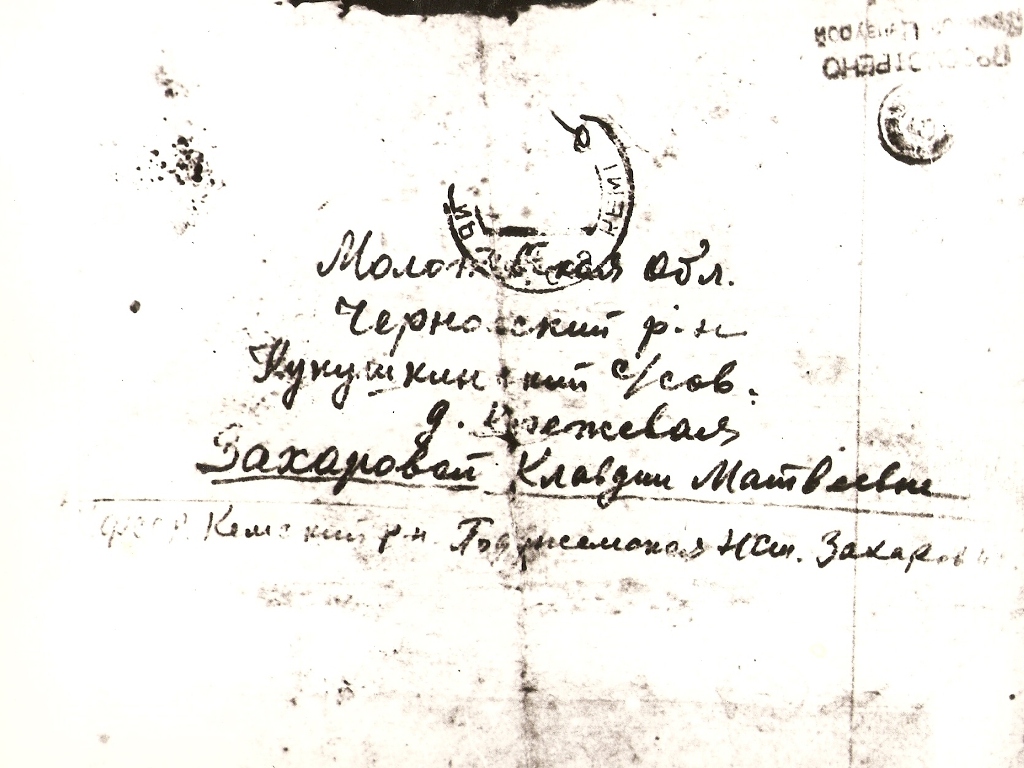 ПРОСМОТРЕНО
Военной Цензурой
КЕМЬ
Молотовская обл.
Черновский р-н
Кукушкинский с/сов.
д.
Захаровой Клавдии Матвеевне
Кемский р-н. Захаров